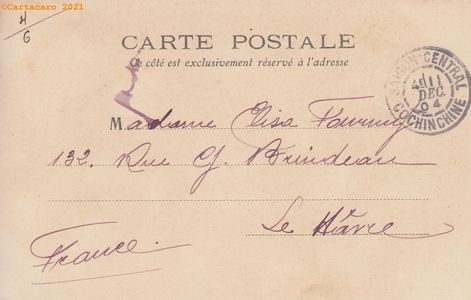 ©Cartacaro 2021
4/6
CARTE POSTALE
Ce côté est exclusivement réservé à l'adresse
SAIGON-CENTRAL
4E 11
DEC.
04
COCHINCHINE
Madame Elisa Fournuy
132. Rue G. Brindeau
Le Hâvre
France.